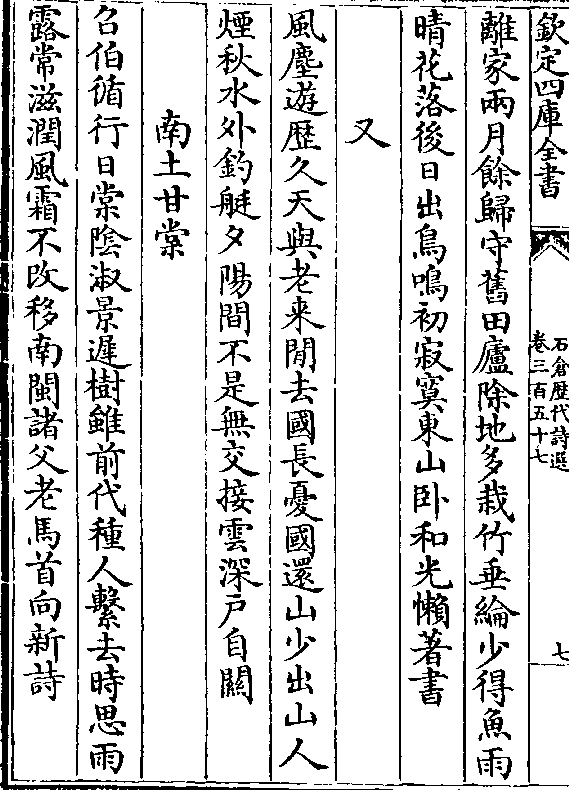 欽定四庫全書
石倉歴代詩選
卷三百五十七
七
離家兩月餘歸守舊田廬除地多栽竹垂綸少得魚雨
晴花落後日出鳥鳴初寂寞東山卧和光懶著書
又
風塵遊歴久天與老来閒去國長憂國還山少出山人
煙秋水外釣艇夕陽間不是無交接雲深户自關
南土甘棠
召伯循行日棠陰淑景遲樹雖前代種人繫去時思雨
露常滋潤風霜不改移南閩諸父老馬首向新詩